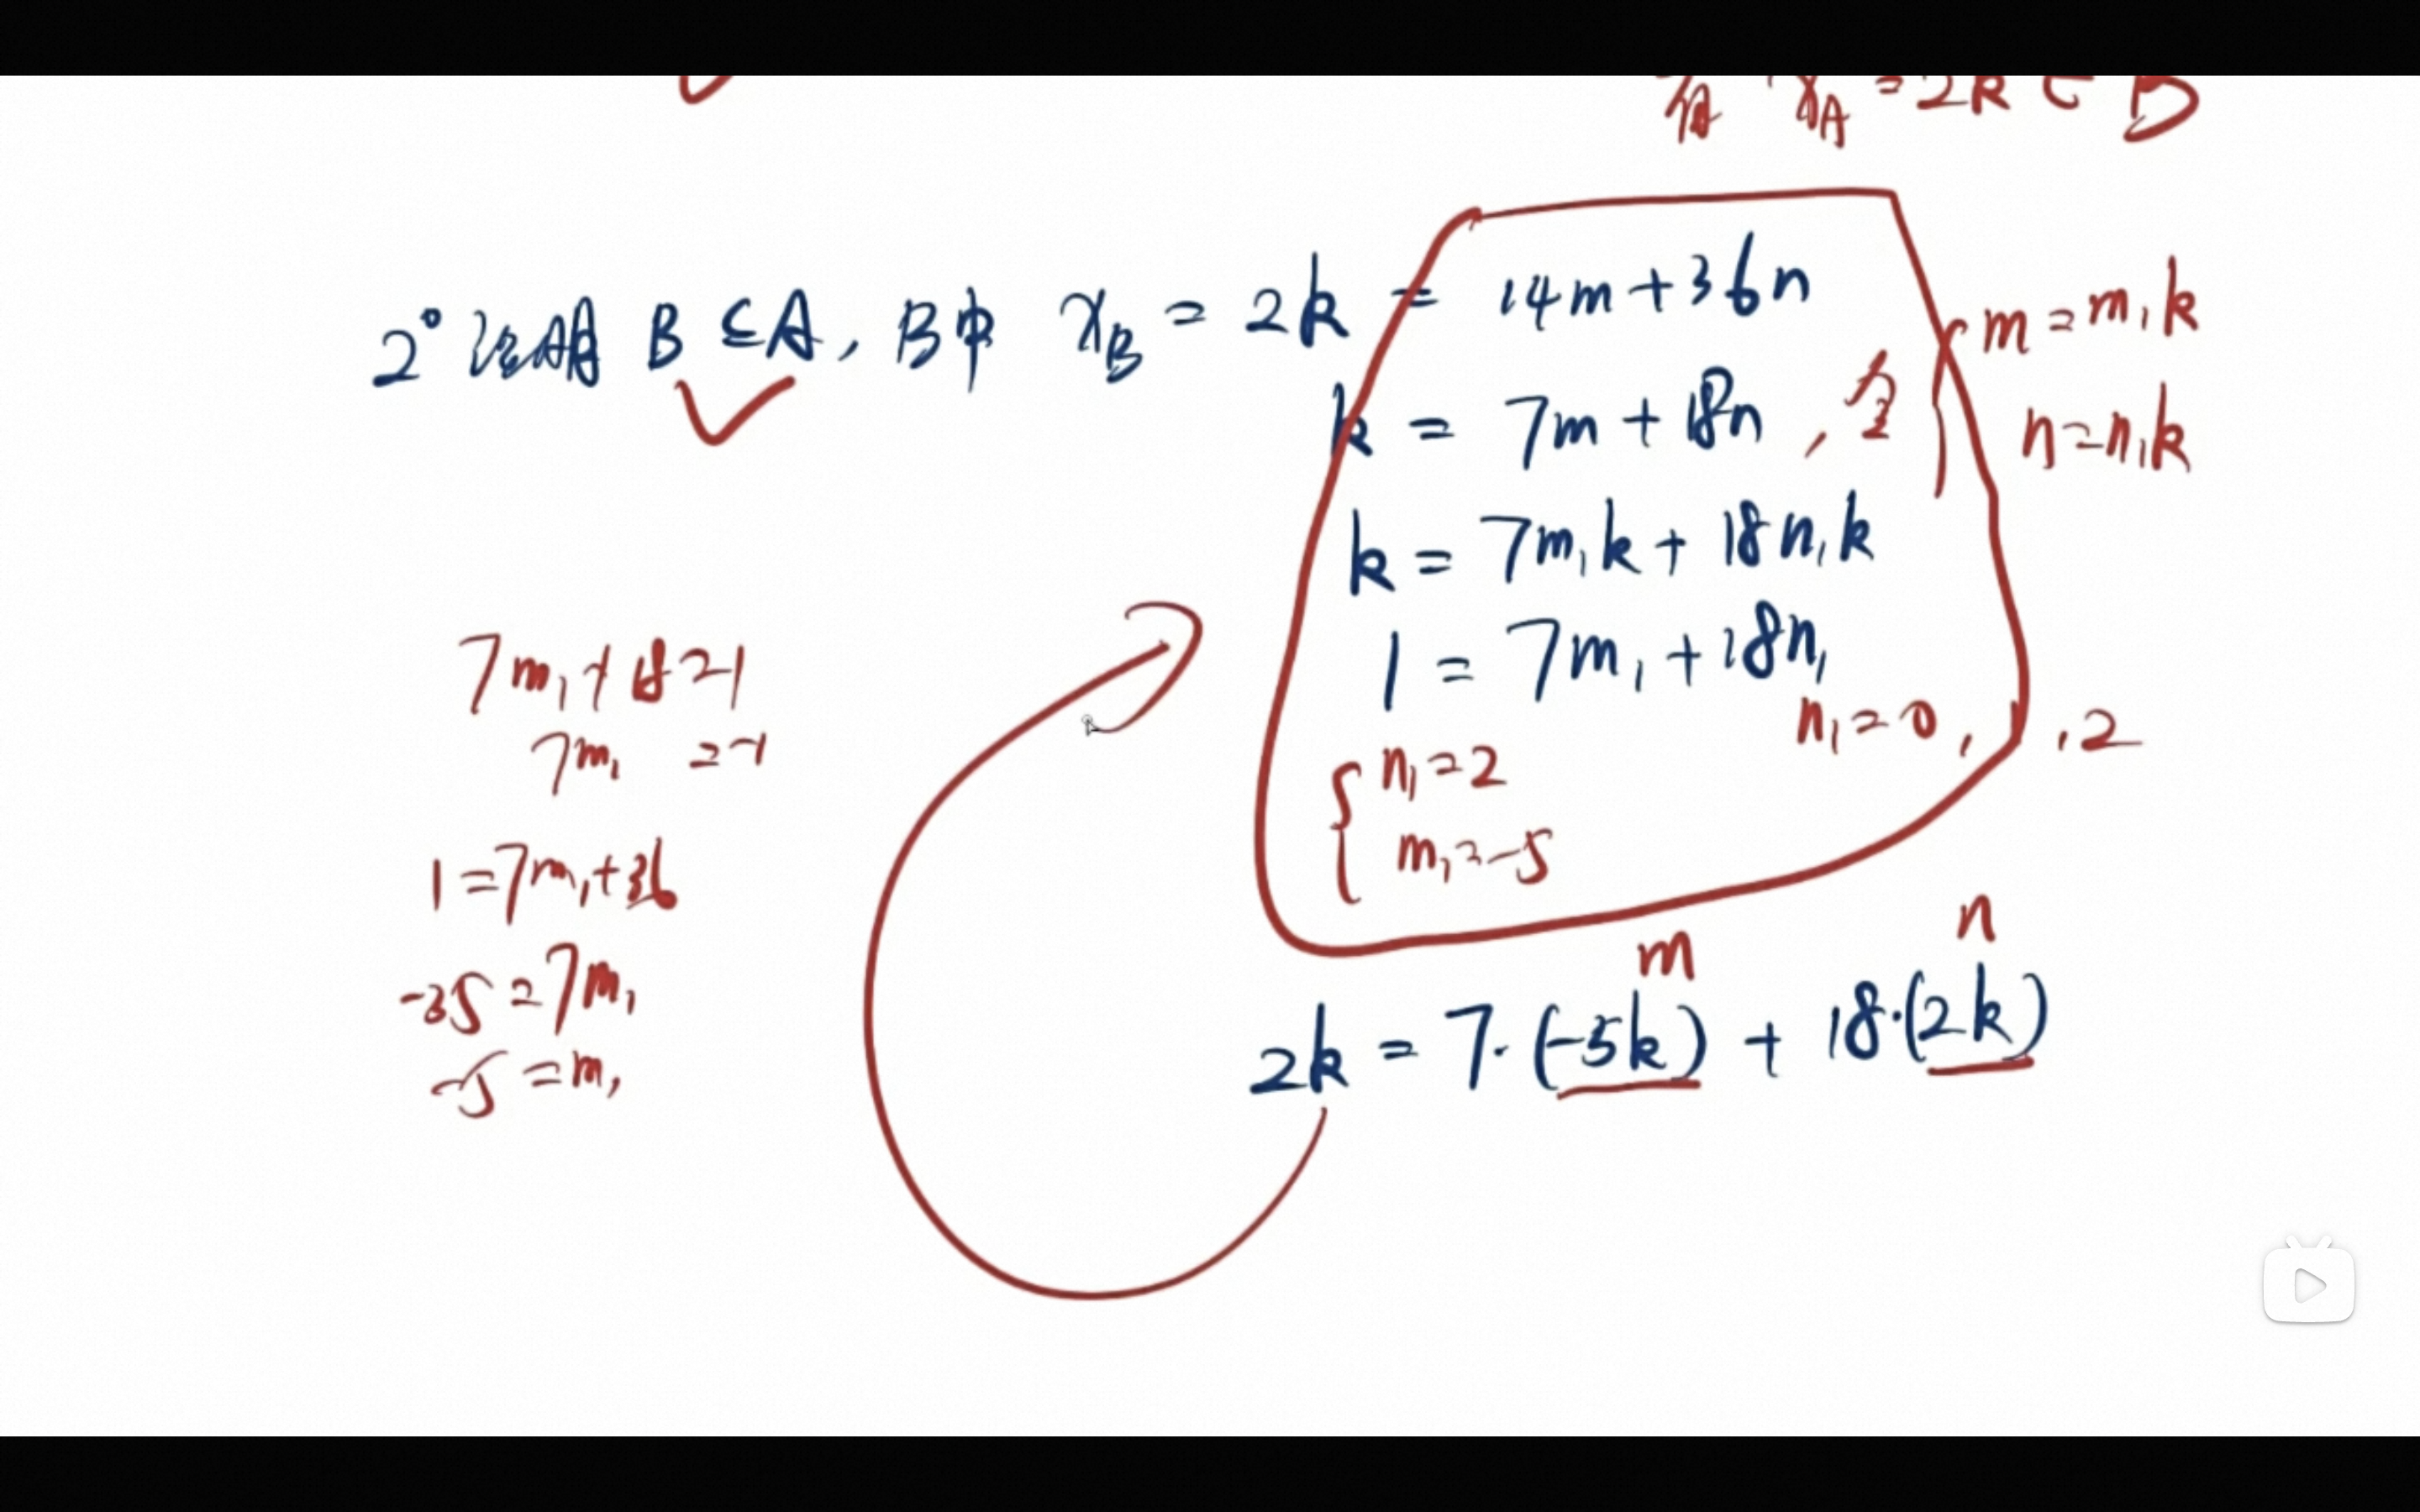 有 x_A = 2k ∈ B
2° 证明 B ⊆ A, B中 x_B = 2k = 14m + 36n
k = 7m + 18n , 令 { m = m₁k
n = n₁k
k = 7m₁k + 18n₁k
1 = 7m₁ + 18n₁
n₁ = 0, 1, 2
{ n₁ = 2
m₁ = -5
7m₁ + 18 = 1
7m₁ = -1
1 = 7m₁ + 36
-35 = 7m₁
-5 = m₁
m n
2k = 7·(-5k) + 18·(2k)